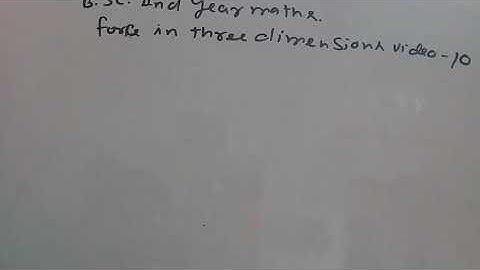 B.Sc. IInd year maths.
force in three dimensions video-10